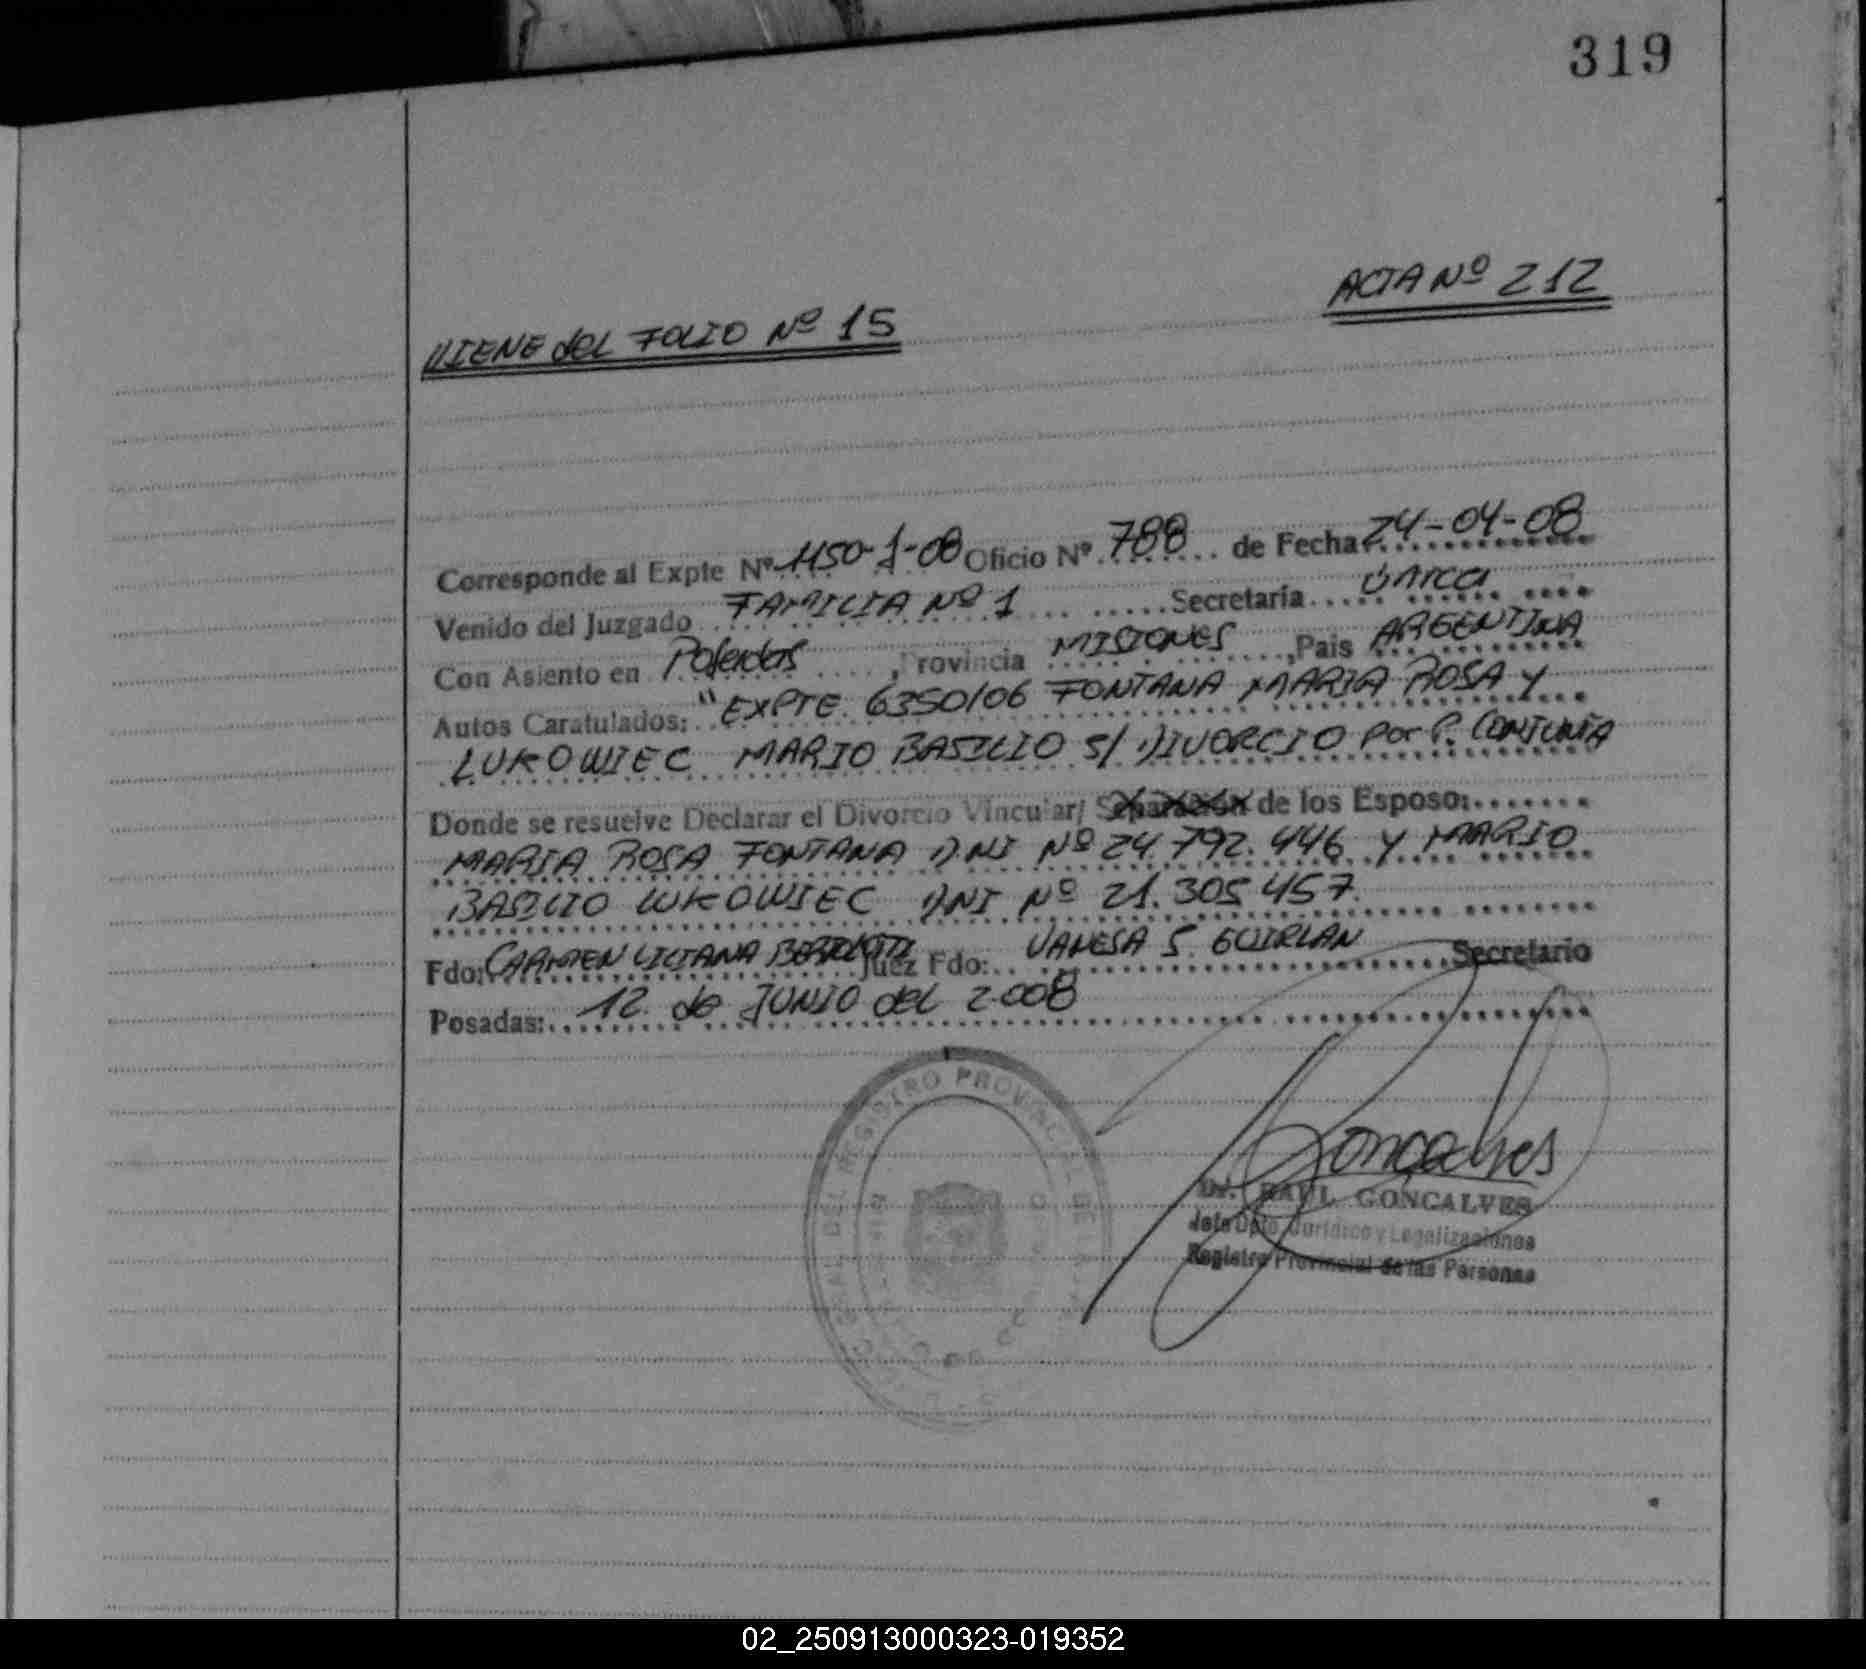 319
ACTA Nº 212
VIENE del FOLIO Nº 15
Corresponde al Expte Nº 1150-J-08 Oficio Nº 788 de Fecha 24-04-08
Venido del Juzgado FAMILIA Nº 1 Secretaría única
Con Asiento en Posadas, Provincia MISIONES, Pais ARGENTINA
Autos Caratulados: "EXPTE. 6350/06 FONTANA MARIA ROSA Y
LUKOWIEC MARIO BASILIO S/ DIVORCIO Por P. CONJUNTA
Donde se resuelve Declarar el Divorcio Vincular/ Separación de los Esposo:
MARIA ROSA FONTANA DNI Nº 24.792.446 Y MARIO
BASILIO LUKOWIEC DNI Nº 21.305.457.
Fdo: CARMEN LILIANA Juez Fdo: VANESA S. GUIRLAN Secretario
Posadas: 12 de JUNIO del 2.008
REGISTRO PROVINCIAL DE LAS
Goncalves
Dr. RAUL GONÇALVES
Jefe Dpto. Jurídico y Legalizaciones
Registro Provincial de las Personas
02_250913000323-019352